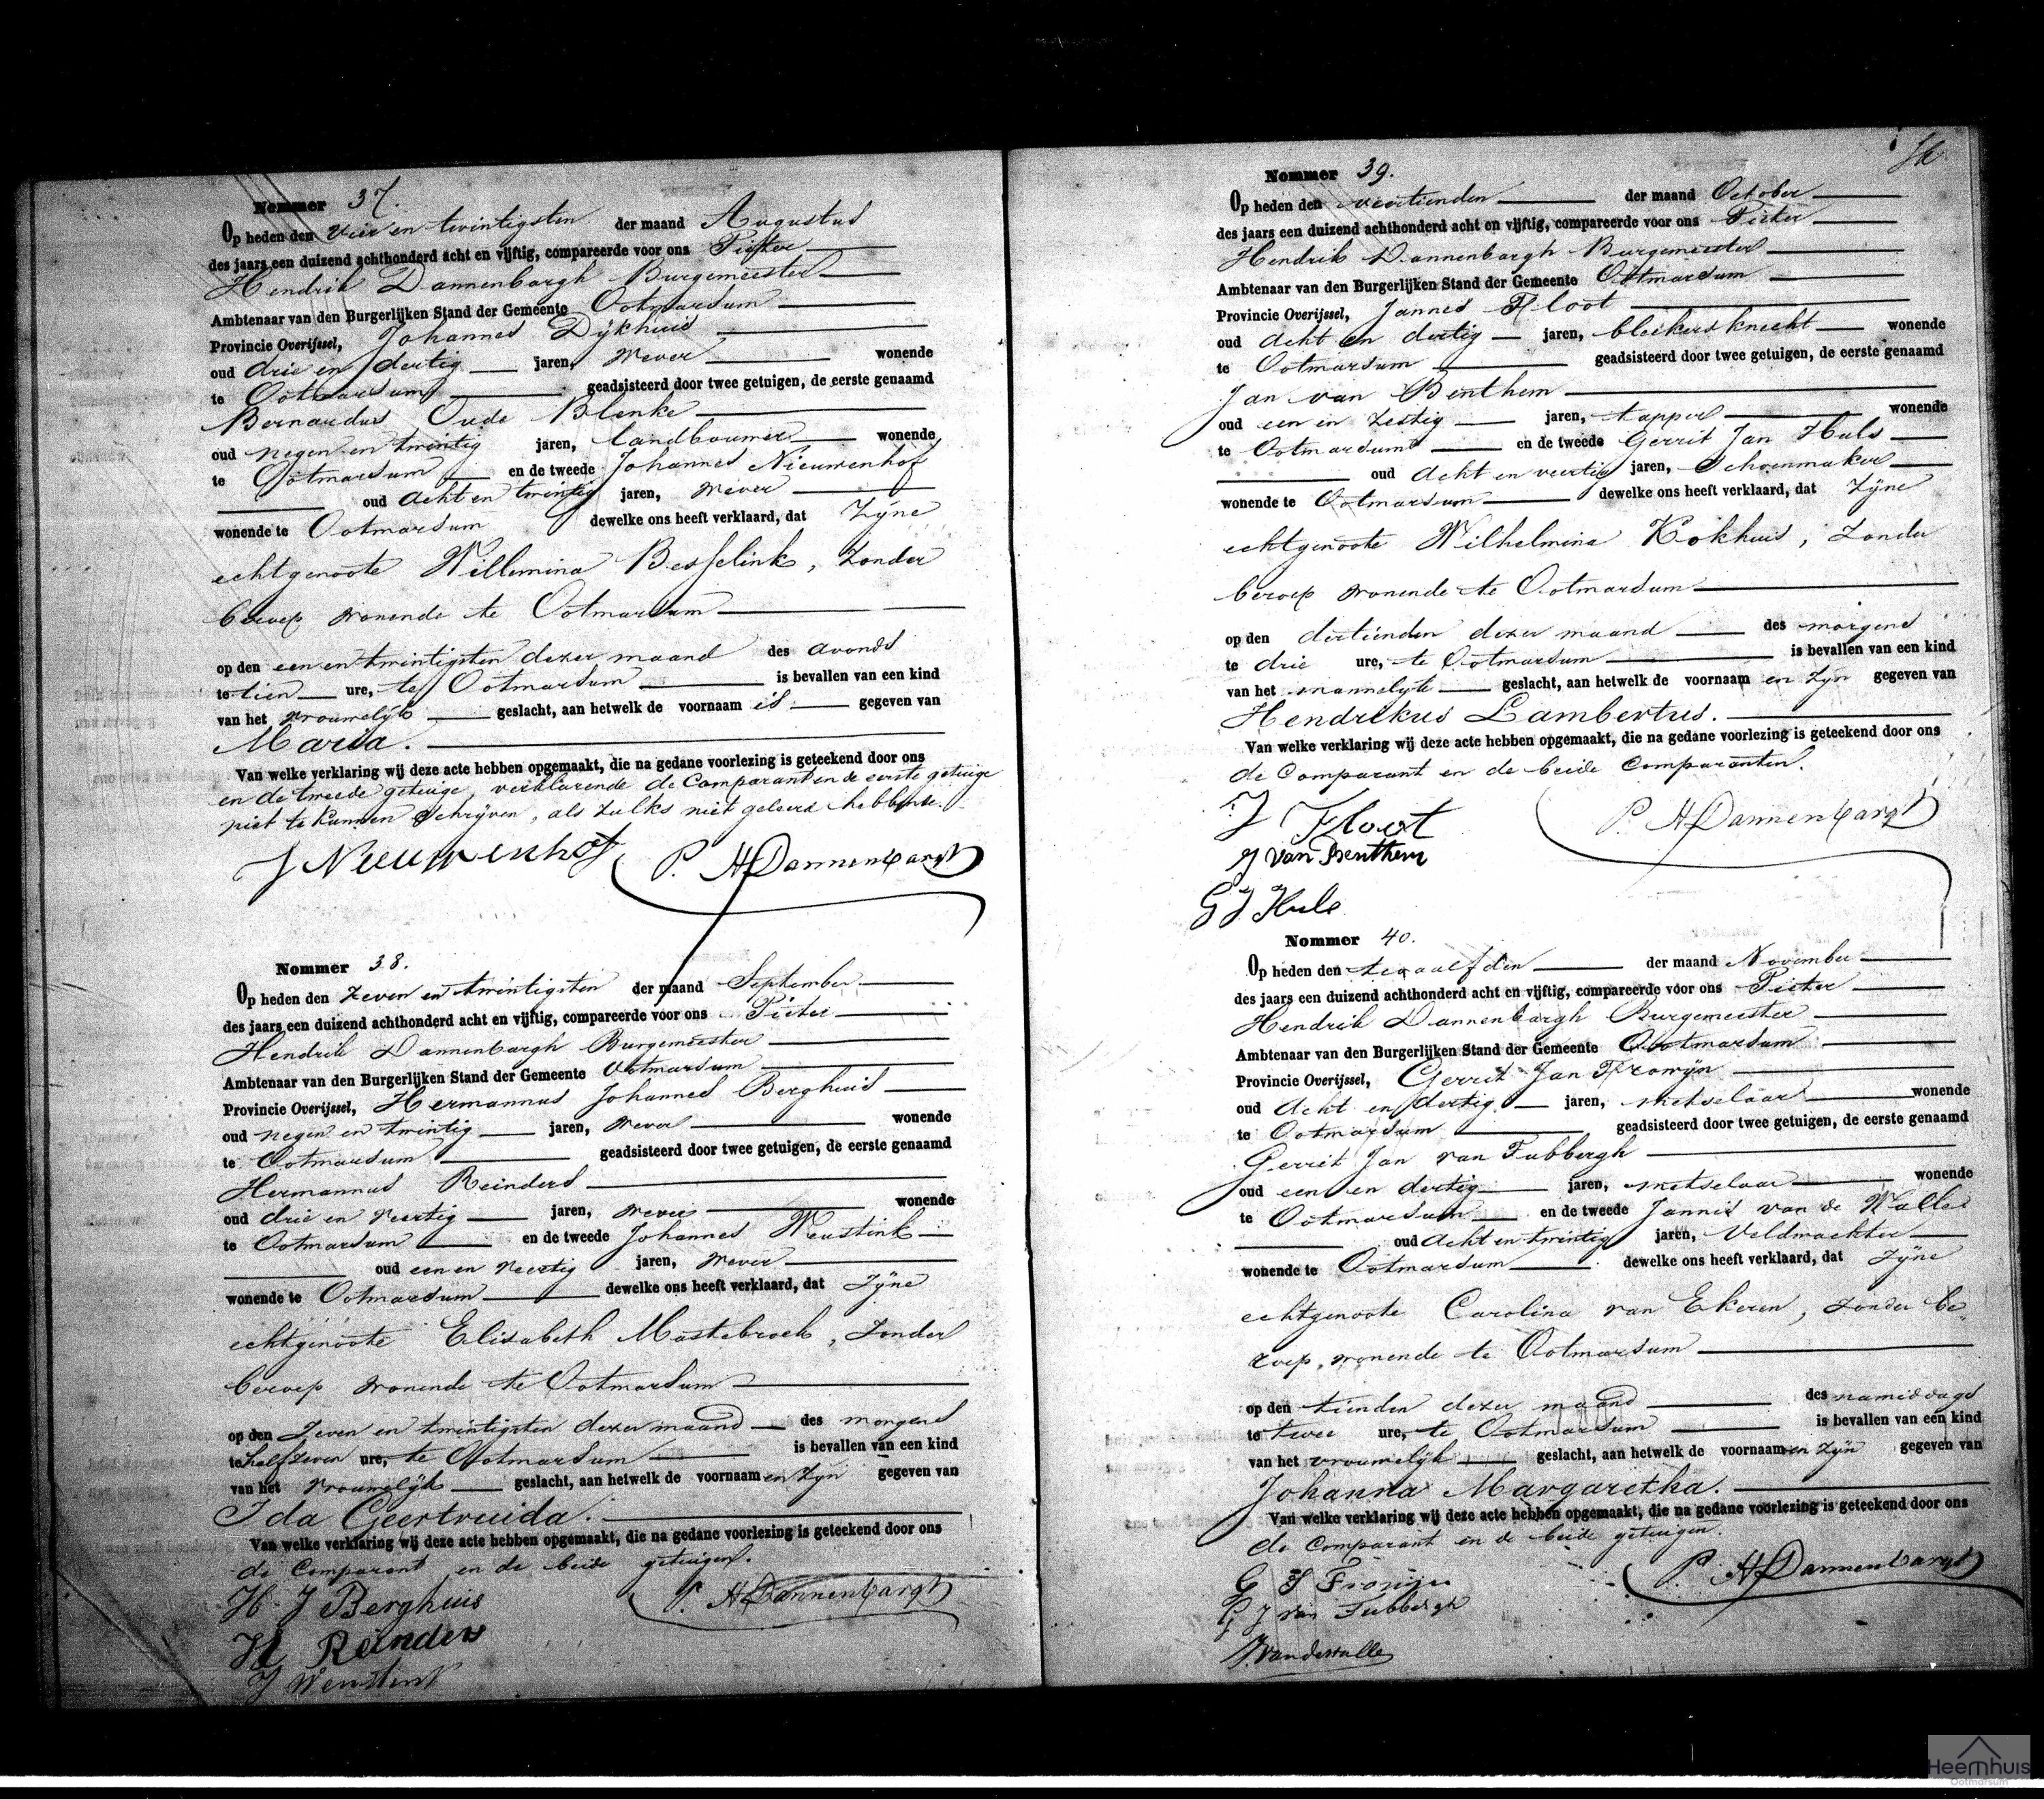 Nommer 37.
Op heden den vier en twintigsten der maand Augustus
des jaars een duizend achthonderd acht en vijftig, compareerde voor ons Pieter
Hendrik Dannenbargh Burgemeester
Ambtenaar van den Burgerlijken Stand der Gemeente Ootmarsum
Provincie Overijssel, Johannes Dijkhuis
oud drie en dertig jaren, wever wonende
te Ootmarsum geadsisteerd door twee getuigen, de eerste genaamd
Bernardus Oude Blenke
oud negen en twintig jaren, landbouwer wonende
te Ootmarsum en de tweede Johannes Nieuwenhof
oud acht en twintig jaren, wever
wonende te Ootmarsum dewelke ons heeft verklaard, dat Zijne
echtgenoote Willemina Besselink, zonder
beroep wonende te Ootmarsum
op den een en twintigsten dezer maand des avonds
te tien ure, te Ootmarsum is bevallen van een kind
van het vrouwelijk geslacht, aan hetwelk de voornaam is gegeven van
Maria.
Van welke verklaring wij deze acte hebben opgemaakt, die na gedane voorlezing is geteekend door ons
en de tweede getuige, verklarende de Comparant en de eerste getuige
niet te kunnen schrijven, als zulks niet geleerd hebbende.
J Nieuwenhof P. H Dannenbargh
Nommer 38.
Op heden den zeven en twintigsten der maand September
des jaars een duizend achthonderd acht en vijftig, compareerde voor ons Pieter
Hendrik Dannenbargh Burgemeester
Ambtenaar van den Burgerlijken Stand der Gemeente Ootmarsum
Provincie Overijssel, Hermannus Johannes Berghuis
oud negen en twintig jaren, wever wonende
te Ootmarsum geadsisteerd door twee getuigen, de eerste genaamd
Hermannus Reinders
oud drie en veertig jaren, wever wonende
te Ootmarsum en de tweede Johannes Weustink
oud een en veertig jaren, wever
wonende te Ootmarsum dewelke ons heeft verklaard, dat Zijne
echtgenoote Elisabeth Mastebroek, zonder
beroep wonende te Ootmarsum
op den zeven en twintigsten dezer maand des morgens
te half zeven ure, te Ootmarsum is bevallen van een kind
van het vrouwelijk geslacht, aan hetwelk de voornaam en zijn gegeven van
Ida Geertruida.
Van welke verklaring wij deze acte hebben opgemaakt, die na gedane voorlezing is geteekend door ons
de Comparant en de beide getuigen.
H. J Berghuis P. H Dannenbargh
H Reinders
J Weustink
Nommer 39.
Op heden den veertienden der maand October
des jaars een duizend achthonderd acht en vijftig, compareerde voor ons Pieter
Hendrik Dannenbargh Burgemeester
Ambtenaar van den Burgerlijken Stand der Gemeente Ootmarsum
Provincie Overijssel, Jannes Floot
oud acht en dertig jaren, bleekersknecht wonende
te Ootmarsum geadsisteerd door twee getuigen, de eerste genaamd
Jan van Benthem
oud een en zestig jaren, tapper wonende
te Ootmarsum en de tweede Gerrit Jan Huls
oud acht en veertig jaren, Schoenmaker
wonende te Ootmarsum dewelke ons heeft verklaard, dat Zijne
echtgenoote Wilhelmina Kokhuis, zonder
beroep wonende te Ootmarsum
op den dertienden dezer maand des morgens
te drie ure, te Ootmarsum is bevallen van een kind
van het mannelijk geslacht, aan hetwelk de voornaam en zijn gegeven van
Hendrikus Lambertus.
Van welke verklaring wij deze acte hebben opgemaakt, die na gedane voorlezing is geteekend door ons
de Comparant en de beide Comparanten.
J Floot P. H Dannenbargh
J van Benthem
G J Huls
Nommer 40.
Op heden den twaalfden der maand November
des jaars een duizend achthonderd acht en vijftig, compareerde voor ons Pieter
Hendrik Dannenbargh Burgemeester
Ambtenaar van den Burgerlijken Stand der Gemeente Ootmarsum
Provincie Overijssel, Gerrit Jan Fronijn
oud acht en dertig jaren, metselaar wonende
te Ootmarsum geadsisteerd door twee getuigen, de eerste genaamd
Gerrit Jan van Tubbergh
oud een en dertig jaren, metselaar wonende
te Ootmarsum en de tweede Jannis van de Walle
oud acht en twintig jaren, Veldwachter
wonende te Ootmarsum dewelke ons heeft verklaard, dat Zijne
echtgenoote Carolina van Ekeren, zonder be
roep, wonende te Ootmarsum
op den tienden dezer maand des namiddags
te twee ure, te Ootmarsum is bevallen van een kind
van het vrouwelijk geslacht, aan hetwelk de voornaam en zijn gegeven van
Johanna Margaretha.
Van welke verklaring wij deze acte hebben opgemaakt, die na gedane voorlezing is geteekend door ons
de Comparant en de beide getuigen.
G J Fronijn P. H Dannenbargh
G J van Tubbergh
J. vandewalle
Heemhuis
Ootmarsum